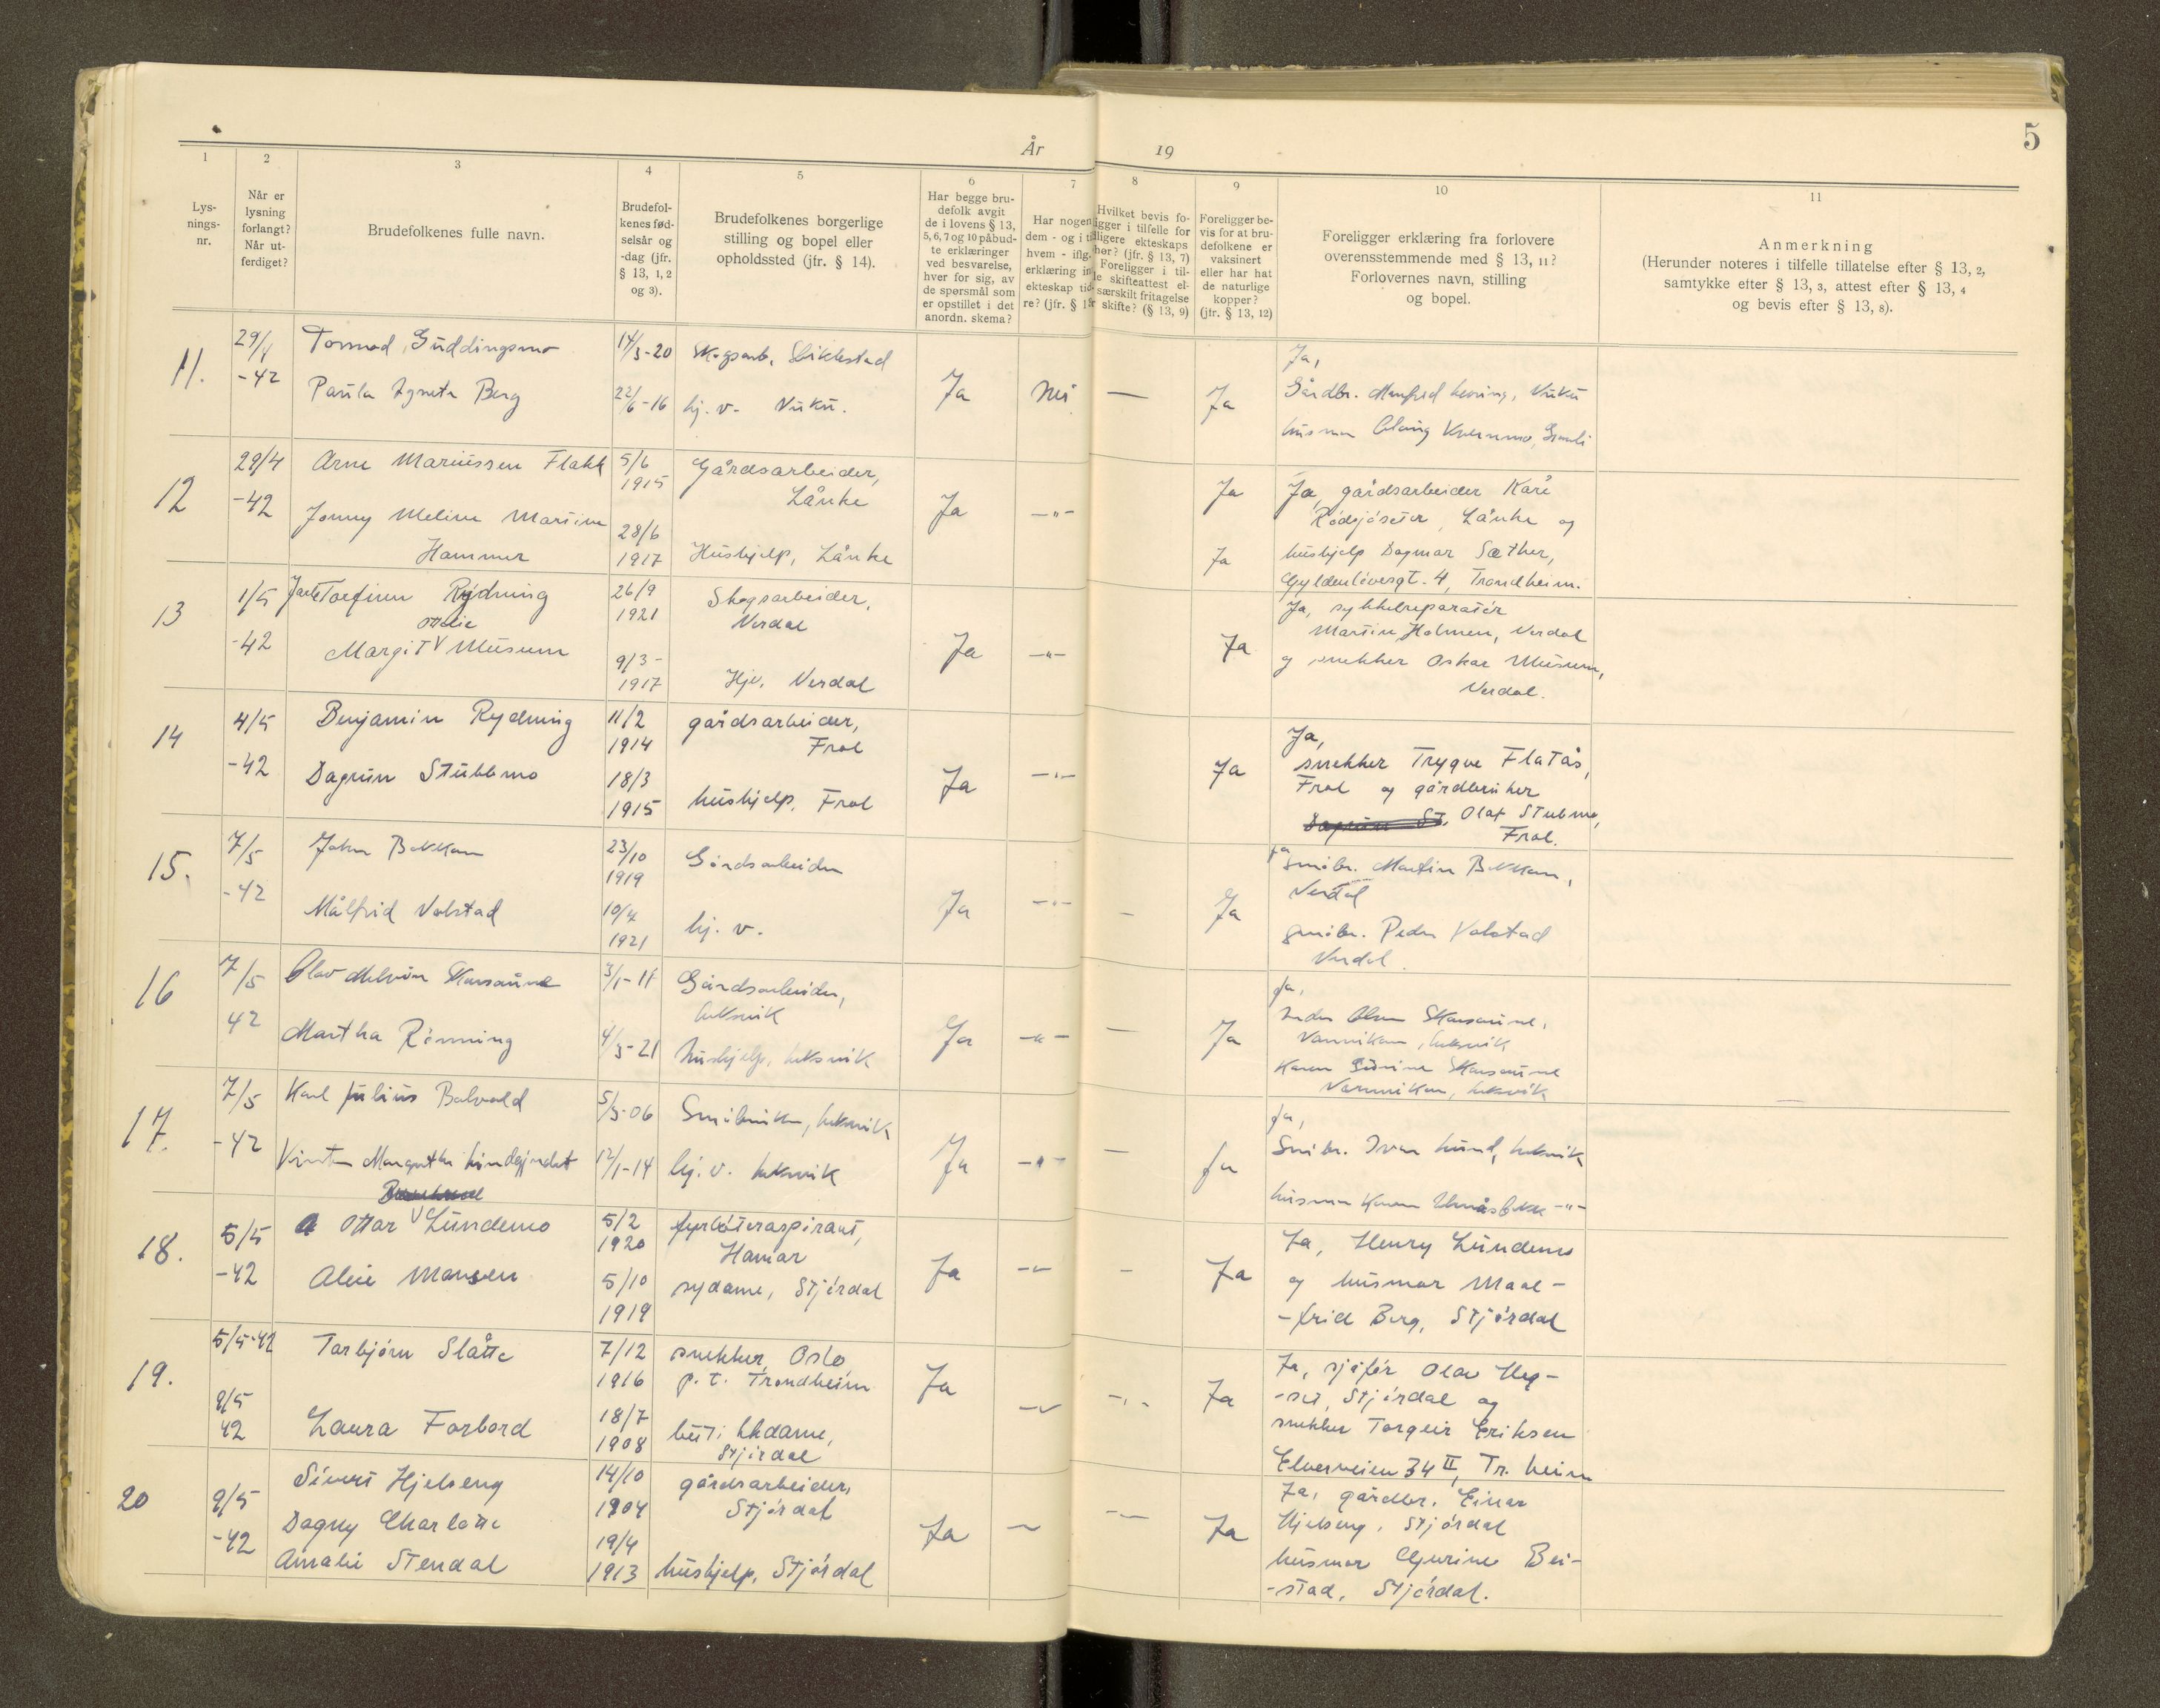 5
År 19
1
Lys-
nings-
nr.
2
Når er
lysning
forlangt?
Når ut-
ferdiget?
3
Brudefolkenes fulle navn.
4
Brudefol-
kenes fød-
selsår og
-dag (jfr.
§ 13, 1, 2
og 3).
5
Brudefolkenes borgerlige
stilling og bopel eller
opholdssted (jfr. § 14).
6
Har begge bru-
defolk avgit
de i lovens § 13,
5, 6, 7 og 10 påbud-
te erklæringer
ved besvarelse,
hver for sig, av
de spørsmål som
er opstillet i det
anordn. skema?
7
Har nogen
dem - og i
hvem - iflg.
erklæring
ekteskap tid-
re? (jfr. §
8
Hvilket bevis fo-
ligger i tilfelle for
tidligere ekteskaps
ophør? (jfr. § 13, 7)
Foreligger i til-
skifteattest el-
særskilt fritagelse
skifte? (§ 13, 9)
9
Foreligger be-
vis for at bru-
defolkene er
vaksinert
eller har hat
de naturlige
kopper?
(jfr. § 13, 12)
10
Foreligger erklæring fra forlovere
overensstemmende med § 13, 11?
Forlovernes navn, stilling
og bopel.
11
Anmerkning
(Herunder noteres i tilfelle tillatelse efter § 13, 2,
samtykke efter § 13, 3, attest efter § 13, 4
og bevis efter § 13, 8).
11.
29/
-42
Tormod Guddingsmo
Paula Agneta Berg
14/3-20
22/6-16
Skogsarb.
hj. v. Vuku.
Ja
Nei
—
Ja
Ja,
Gårdbr. Vuku
12
29/4
-42
Arne Mariussen Flakk
Jonny Meline Martine
Hammer
5/6
1915
28/6
1917
Gårdsarbeider,
Lånke
Hushjelp, Lånke
Ja
-"-
Ja
Ja
Ja, gårdsarbeider Kåre
Lånke og
hushjelp Dagmar Sæther,
Gyldenløvesgt. 4, Trondheim.
13
1/5
-42
Torfinn Rydning
Margit Musum
26/9
1921
9/3-
1917
Skogsarbeider,
Verdal
Hjv. Verdal
Ja
-"-
Ja
Ja, sykkelreparatør
Martin Holmen, Verdal
og snekker Oskar Musum,
Verdal.
14
4/5
-42
Benjamin Rydning
Dagrun Stubbmo
11/2
1914
18/3
1915
gårdsarbeider,
Frol
hushjelp, Frol
Ja
-"-
Ja
Ja,
snekker Trygve Flatås,
Frol og gårdbruker
Olaf Stubmo,
Frol.
15.
7/5
-42
John Bakkan
Målfrid Volstad
23/10
1919
10/4
1921
Gårdsarbeider
hj. v.
Ja
-"-
–
Ja
Ja
småbr. Martin Bakkan,
Verdal
småbr. Peder Volstad
Verdal
16
7/5
42
Martha Rønning
3/1-11
4/3-21
Gårdsarbeider,
Leksvik
hushjelp, Leksvik
Ja
-"-
—
Ja
Ja,
Vannvikan, Leksvik
Vannvikan, Leksvik
17.
7/5
-42
Karl Julius
5/3-06
12/1-14
Småbruker, Leksvik
hj. v. Leksvik
Ja
-"-
—
Ja
Ja,
Småbr. Ivar Lund, Leksvik
18.
5/5
-42
Ottar Lundemo
5/2
1920
5/10
1919
fyrbøteraspirant,
Hamar
sydame, Stjørdal
Ja
-"-
–
Ja
Ja, Henry Lundemo
og husmor Maal-
-frid Berg, Stjørdal
19.
5/5-42
9/5
42
Torbjørn Slåtte
Laura Forbord
7/12
1916
18/7
1908
snekker, Oslo
p. t. Trondheim
butikkdame,
Stjørdal
Ja
Ja
Ja, sjåfør Olav
Stjørdal og
snekker Torgeir Eriksen
Elverveien 34 II, Tr.heim
20
9/5
-42
Sivert Hjelseng
Dagny Charlotte
Amalie Stendal
14/10
1904
19/4
1913
gårdsarbeider,
Stjørdal
hushjelp, Stjørdal
Ja
Ja
Ja, gårdbr. Einar
Hjelseng, Stjørdal
husmor Gurine Bei-
-stad, Stjørdal.